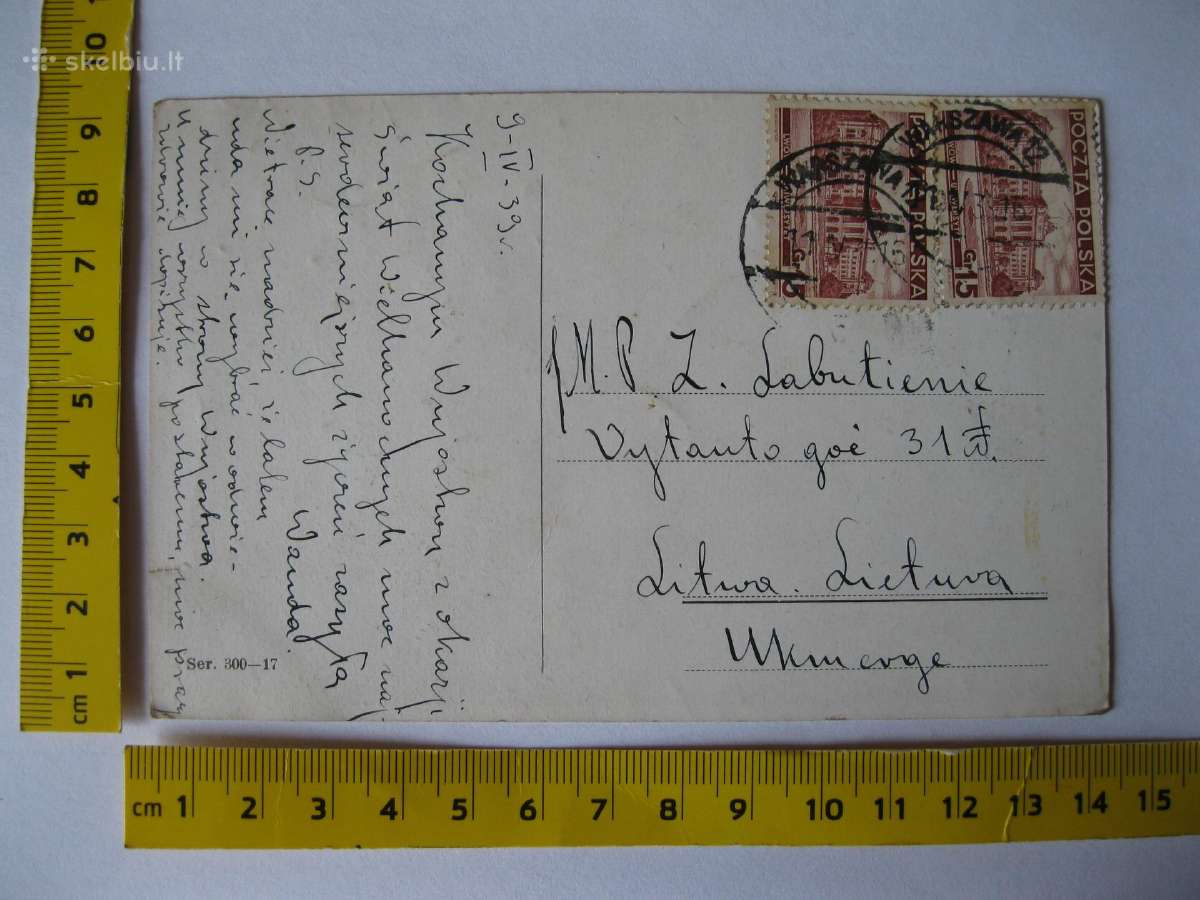 skelbiu.lt
9-IV-39 r.
Kochanym Wujostwu z okazji
Świąt Wielkanocnych moc naj
serdeczniejszych życzeń zasyła
Wanda.
P.S.
Nie tracę nadziei, że latem
uda mi się wybrać w odwie-
dziny w strony Wujostwa.
U mnie wszystko po staremu, moc pracy
zdrowie dopisuje.
Ser. 300—17
WARSZAWA
WARSZAWA 12
POCZTA POLSKA
15
POCZTA POLSKA
15
M. P. Z. Labutienie
Vytauto gvė 31
Litwa. Lietuva
Ukmerge
cm 1 2 3 4 5 6 7 8 9 10
cm 1 2 3 4 5 6 7 8 9 10 11 12 13 14 15